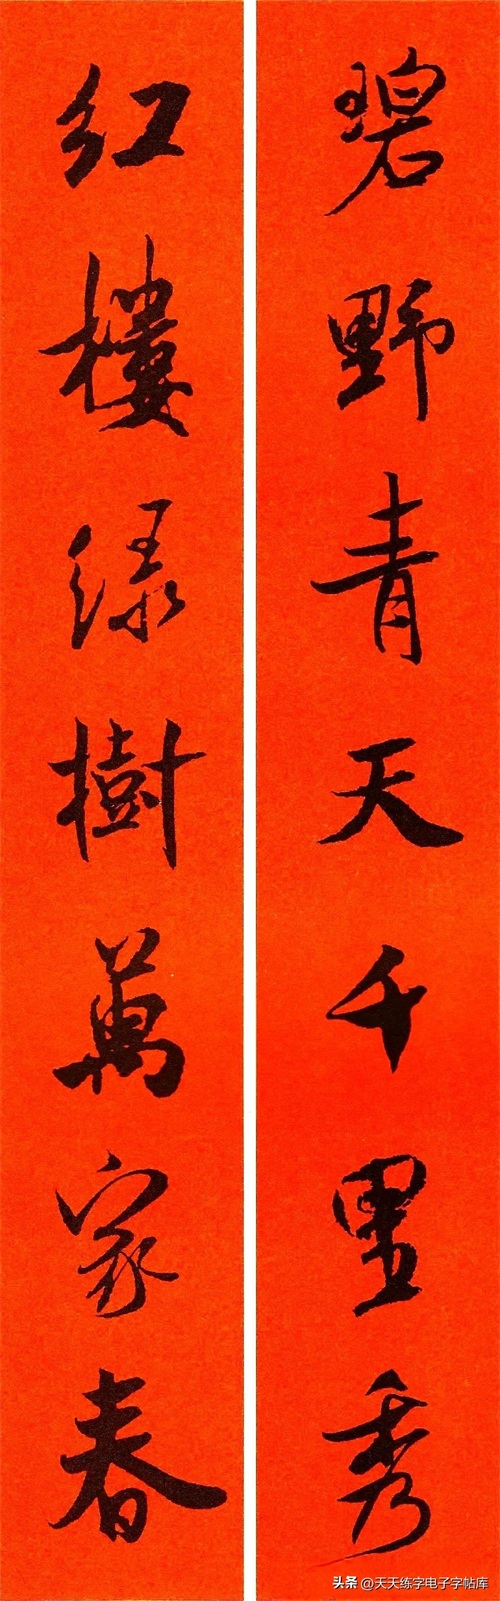 碧野青天千里秀
红楼绿樹萬家春
头条 @天天练字电子字帖库